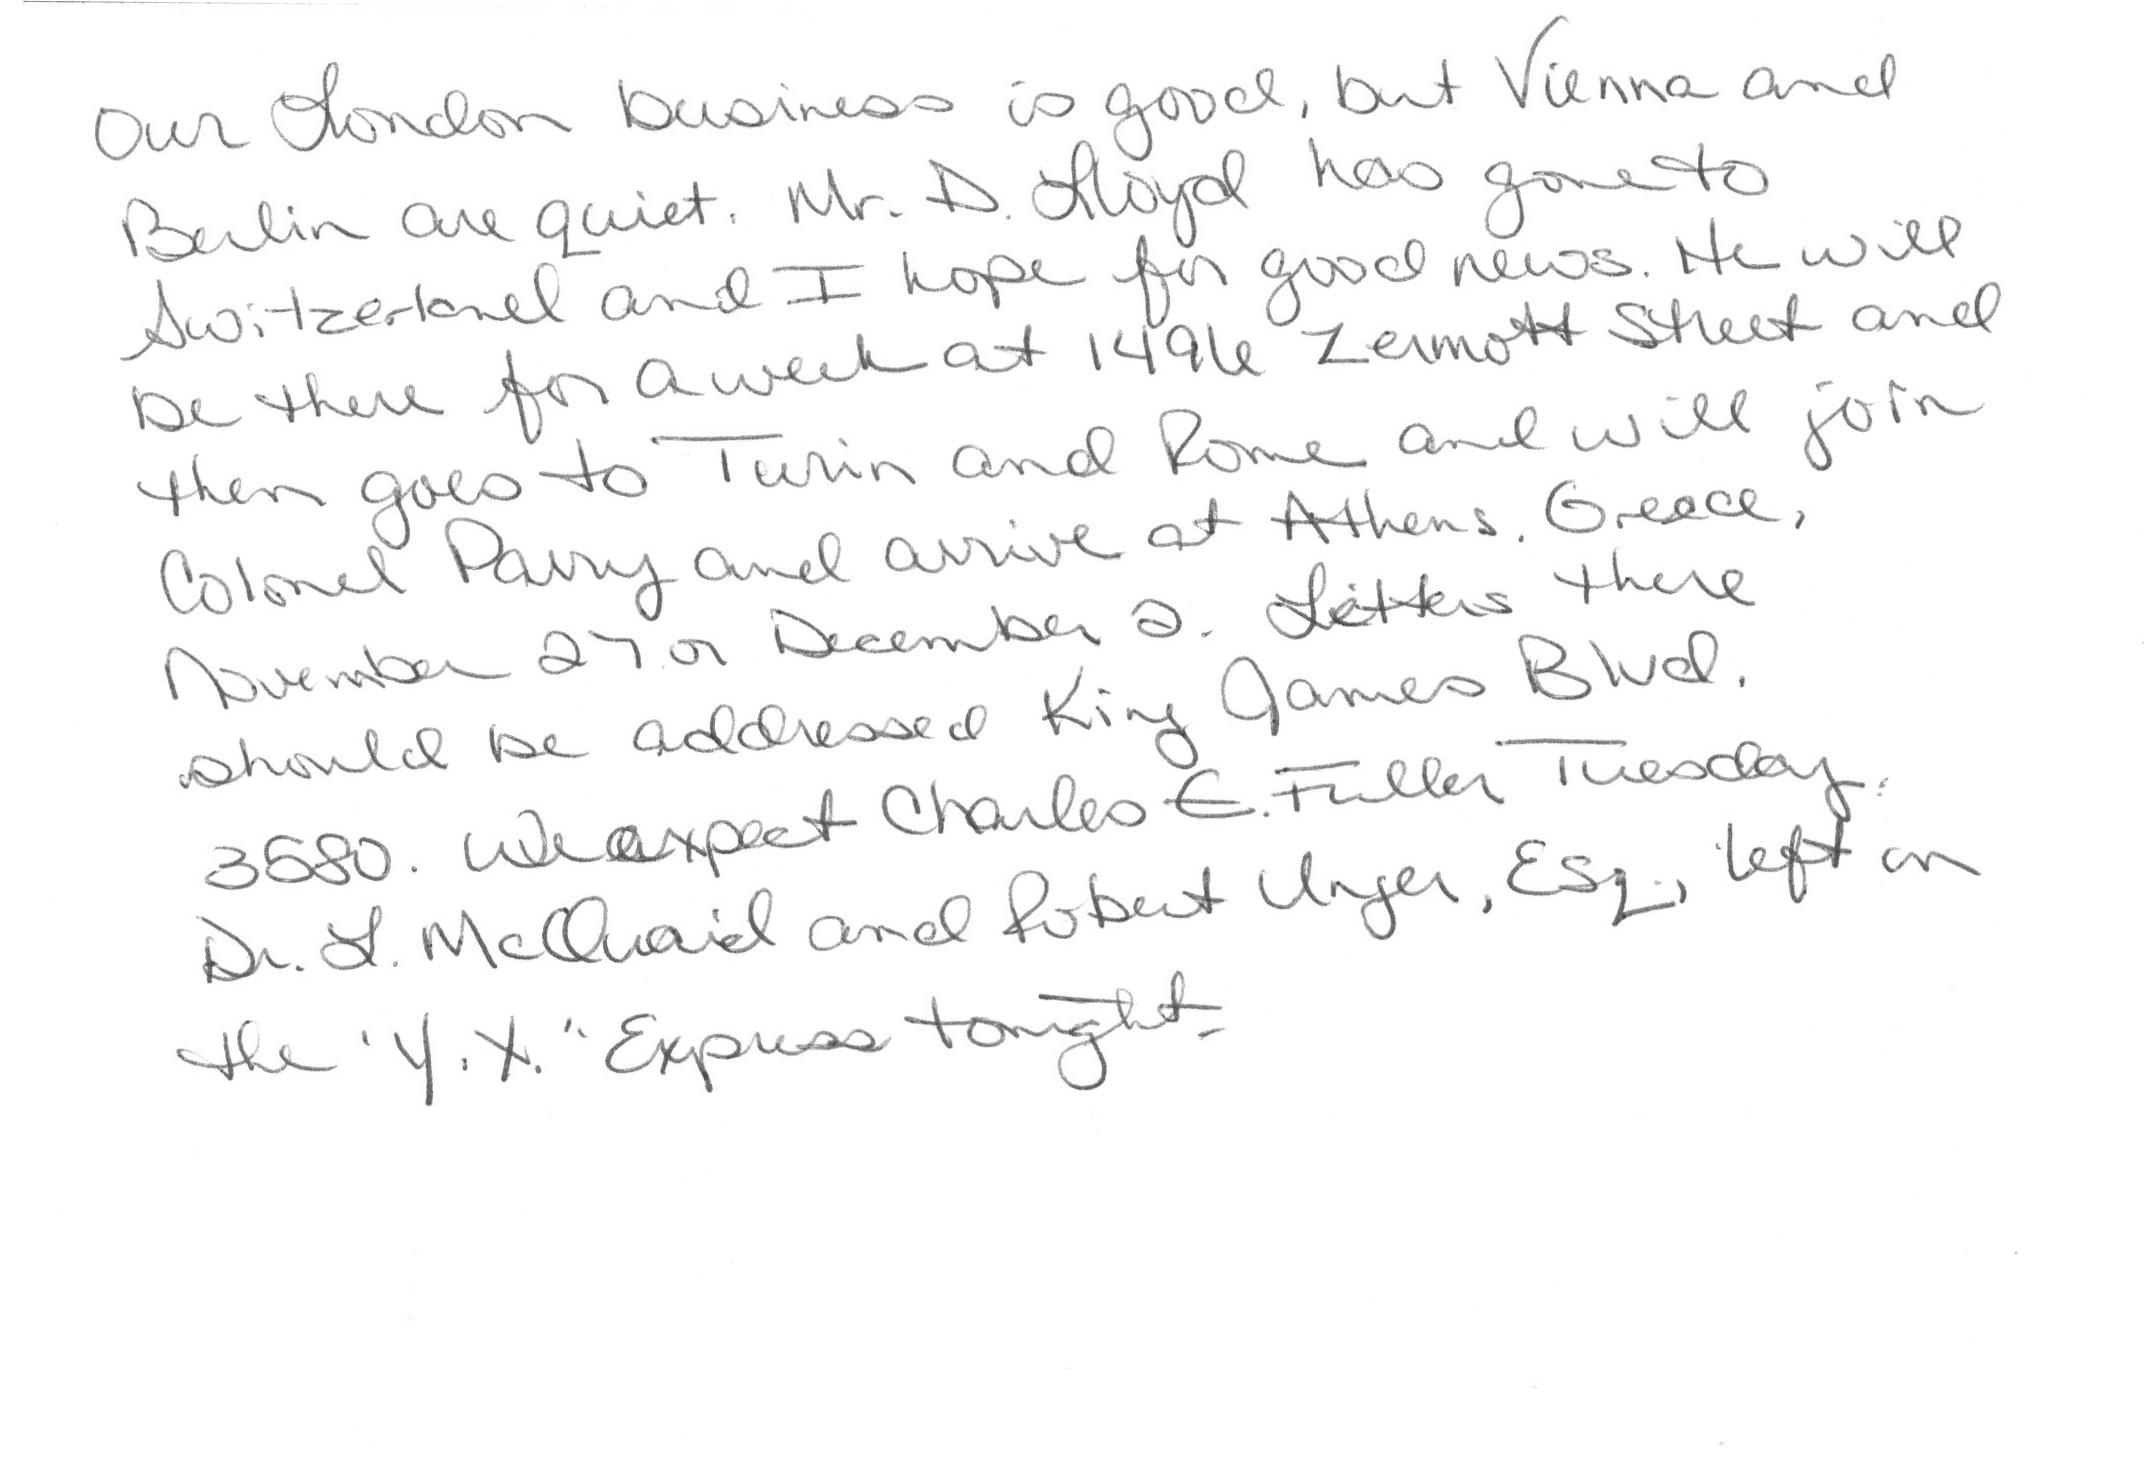 Our London business is good, but Vienna and
Berlin are quiet. Mr. D. Lloyd has gone to
Switzerland and I hope for good news. He will
be there for a week at 1496 Zermott Street and
then goes to Turin and Rome and will join
Colonel Parry and arrive at Athens, Greece,
November 27 or December 2. Letters there
should be addressed King James Blvd.
3580. We expect Charles E. Fuller Tuesday.
Dr. L. McQuaid and Robert Unger, Esq., left on
the "Y.X." Express tonight.